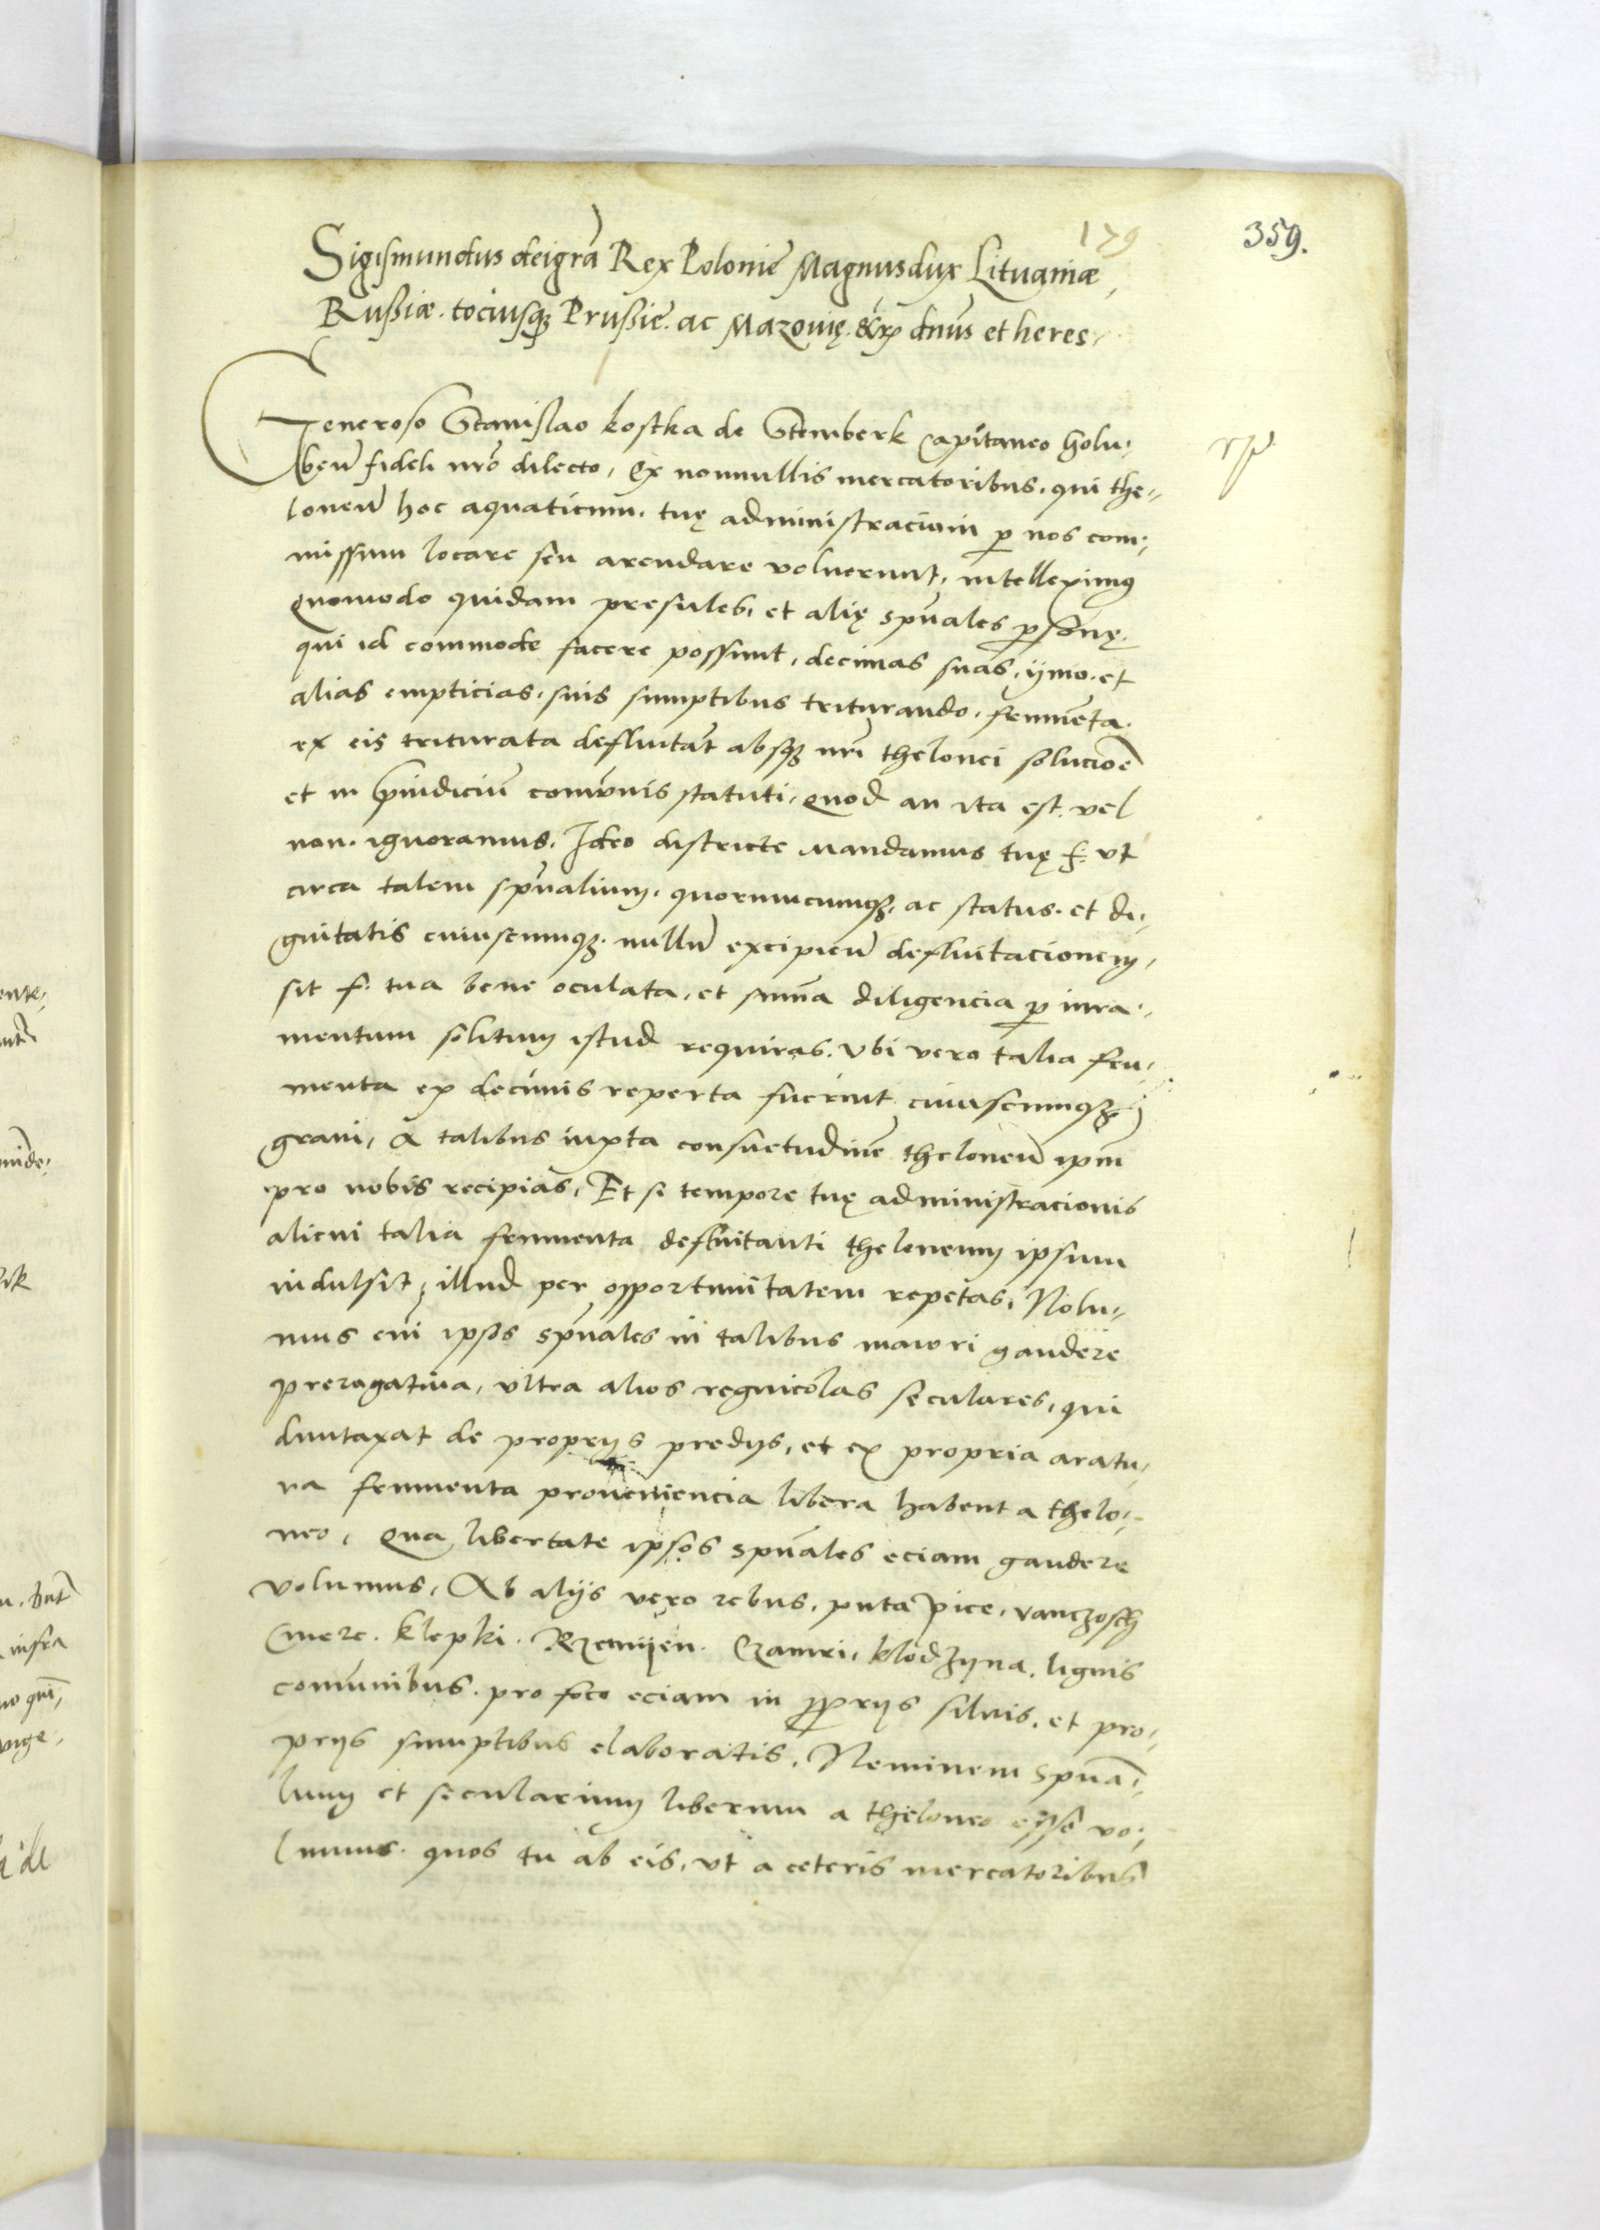 179
359.
Sigismundus dei gra Rex Polonie Magnus dux Lituaniæ
Russiæ. tociusq₃ Prussie. ac Mazouię. &cr. dnus et heres.
Generoso Stanislao kostka de Stemberk Capitaneo Golu:
ben fideli nro dilecto, Ex nonnullis mercatoribus, qui the:
loneu hoc aquaticum, tuę administracioni p nos com:
missum locare seu arendare voluerunt, intelleximus
Quomodo quidam presules, et alię spuales psonę.
qui id commode facere possunt, decimas suas, ymo et
alias empticias, suis sumptibus triturando, frumēta
ex eis triturata defluitāt absq₃ nri thelonei solucione
et in piudiciu comunis statuti, Quod an ita est, vel
non. ignoramus. Ideo districte mandamus tuę f. vt
circa talem spualium, quorumcumq₃, ac status et di:
gnitatis cuiuscumq₃ nullu excipieu defluitacionem,
sit f. tua bene oculata, et suma diligencia p iura:
mentum solitum istud requiras. Vbi vero talia fru:
menta ex decimis reperta fuerint cuiuscumq₃
grani, A talibus iuxta consuetudine theloneu ipm
pro nobis recipias, Et si tempore tuę administracionis
alicui talia frumenta defluitanti theloneum ipsum
indulsit, illud per opportunitatem repetas, Nolu:
mus eni ipsos spuales in talibus maiori gaudere
prerogatiua, vltra alios regnicolas seculares, qui
duntaxat de proprijs predijs, et ex propria aratu:
ra frumenta proueniencia libera habent a thelo:
neo, Qua libertate ipsos spuales eciam gaudere
volumus, Ab alijs vero rebus, puta pice, vanczosch
Cinere. klepki. Rzemyen. Czamri, klodzyna, lignis
comunibus. pro foco eciam in pprijs siluis, et pro:
prijs sumptibus elaboratis, Neminem spua:
lium et secularium liberum a theloneo esse vo:
lumus. quos tu ab eis, vt a ceteris mercatoribus